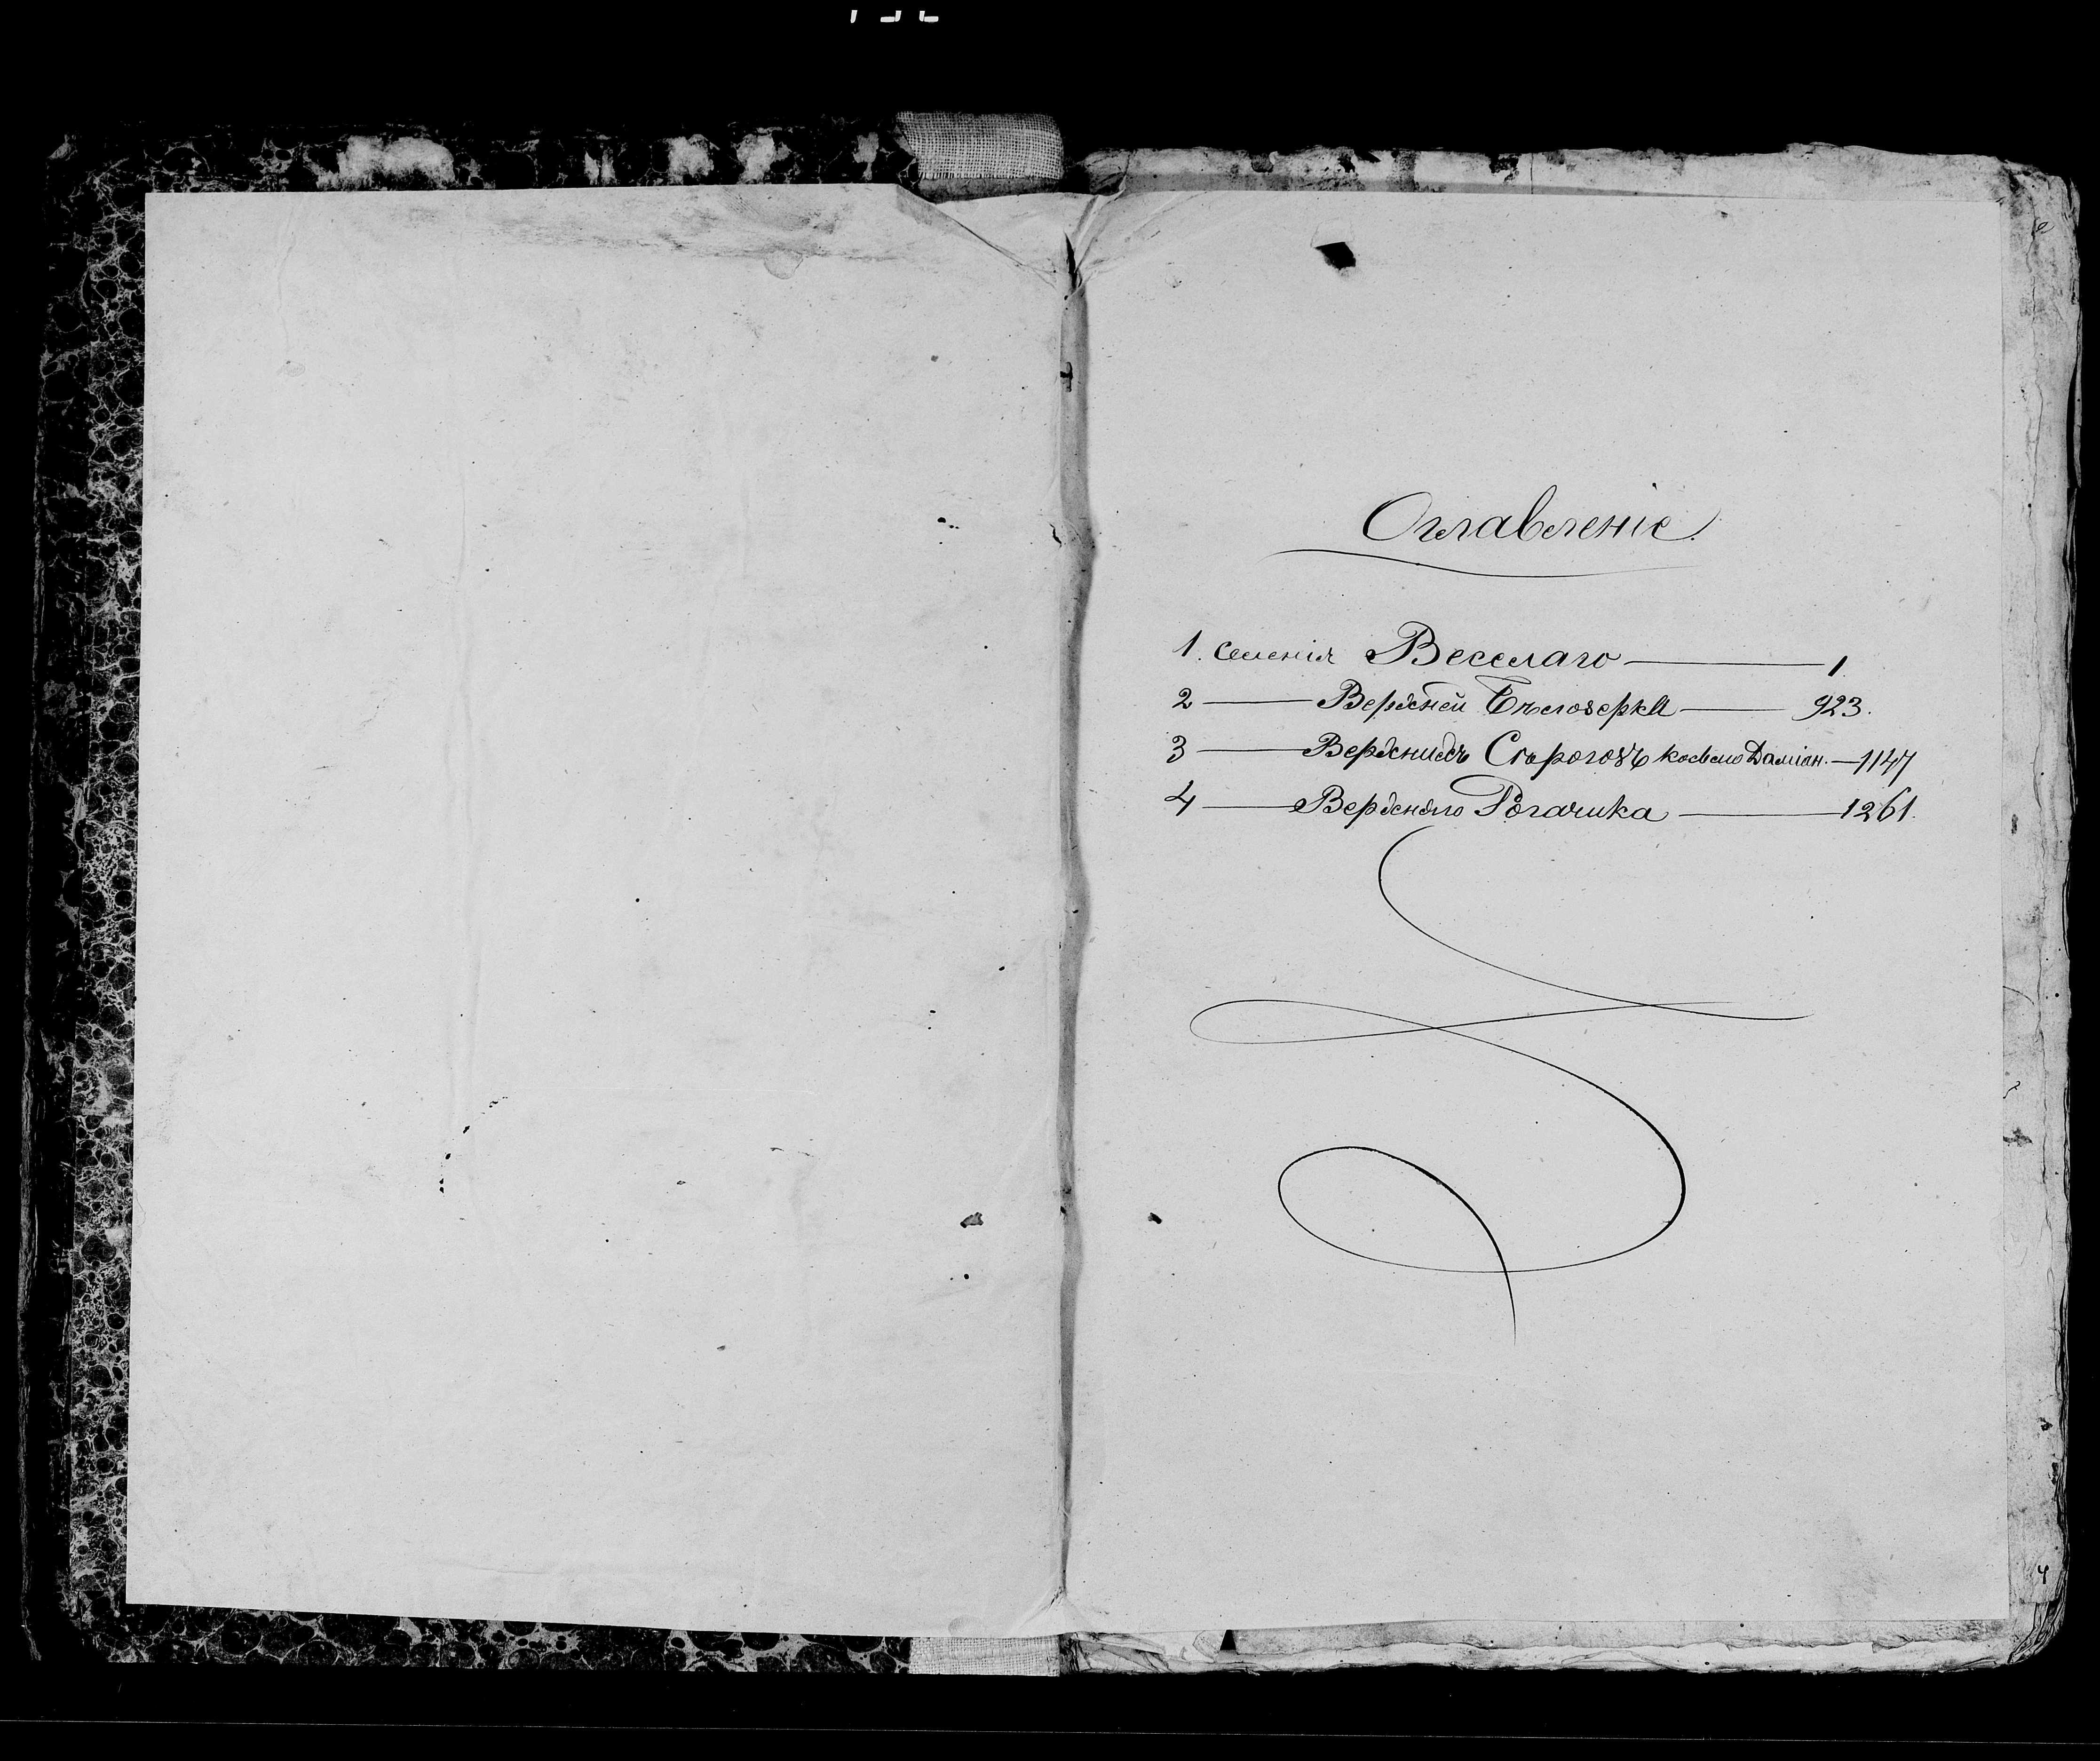 Оглавленіе.
1. Селенія Веселаго — 1.
2 — Верхней Бѣлозерки — 923.
3 — Верхнихъ Сѣрогозъ космо Даміан. — 1147
4 — Верхняго Рогачика — 1261.